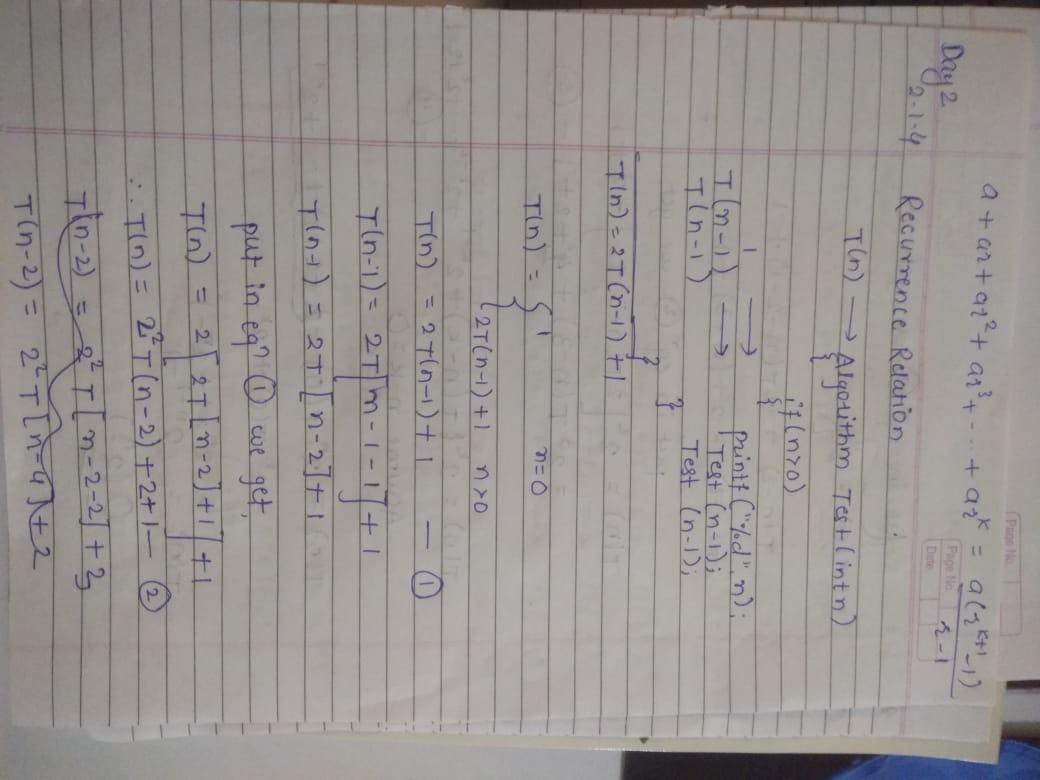 Page No.
Page No.
Date
a + ar + ar² + ar³ + --- + ar^k = a(r^(k+1) -1) / r-1
Day 2
2.1.4 Recurrence Relation
T(n) → Algorithm Test(int n)
{
if(n>0)
{
1 → printf("%d". n);
T(n-1) → Test (n-1);
T(n-1) Test (n-1);
}
}
T(n) = 2T(n-1)+1
T(n) = { 1 n=0
2T(n-1)+1 n>0
T(n) = 2T(n-1)+1 — ①
T(n-1) = 2T[n-1-1]+1
T(n-1) = 2T[n-2]+1
put in eqn ① we get,
T(n) = 2[2T[n-2]+1]+1
∴ T(n) = 2²T(n-2)+2+1 — ②
T(n-2) = 2²T[n-2-2]+3
T(n-2) = 2²T[n-4]+2